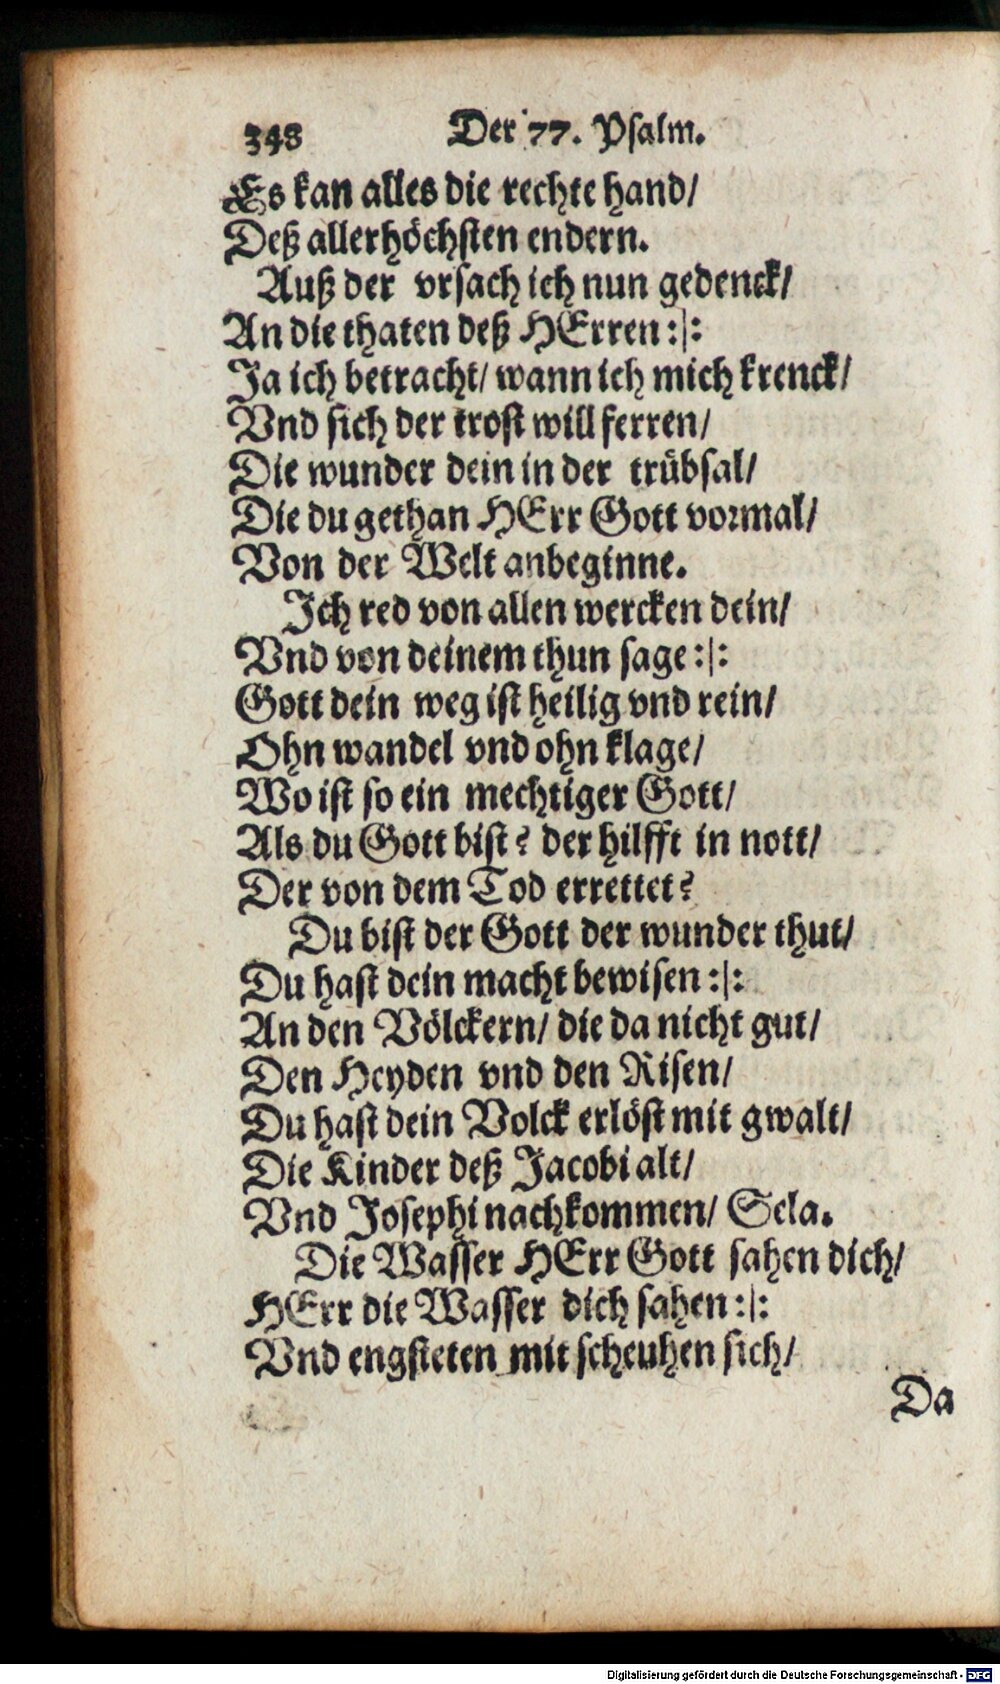 348 Der 77. Psalm.
Es kan alles die rechte hand/
Deß allerhöchsten endern.
Auß der vrsach ich nun gedenck/
An die thaten deß HErren :|:
Ja ich betracht/ wann ich mich krenck/
Vnd sich der trost will ferren/
Die wunder dein in der trübsal/
Die du gethan HErr Gott vormal/
Von der Welt anbeginne.
Ich red von allen wercken dein/
Vnd von deinem thun sage :|:
Gott dein weg ist heilig vnd rein/
Ohn wandel vnd ohn klage/
Wo ist so ein mechtiger Gott/
Als du Gott bist? der hilfft in nott/
Der von dem Tod errettet?
Du bist der Gott der wunder thut/
Du hast dein macht bewisen :|:
An den Völckern/ die da nicht gut/
Den Heyden vnd den Risen/
Du hast dein Volck erlöst mit gwalt/
Die Kinder deß Jacobi alt/
Vnd Josephi nachkommen/ Sela.
Die Wasser HErr Gott sahen dich/
HErr die Wasser dich sahen :|:
Vnd engsteten mit scheuhen sich/
Da
Digitalisierung gefördert durch die Deutsche Forschungsgemeinschaft - DFG